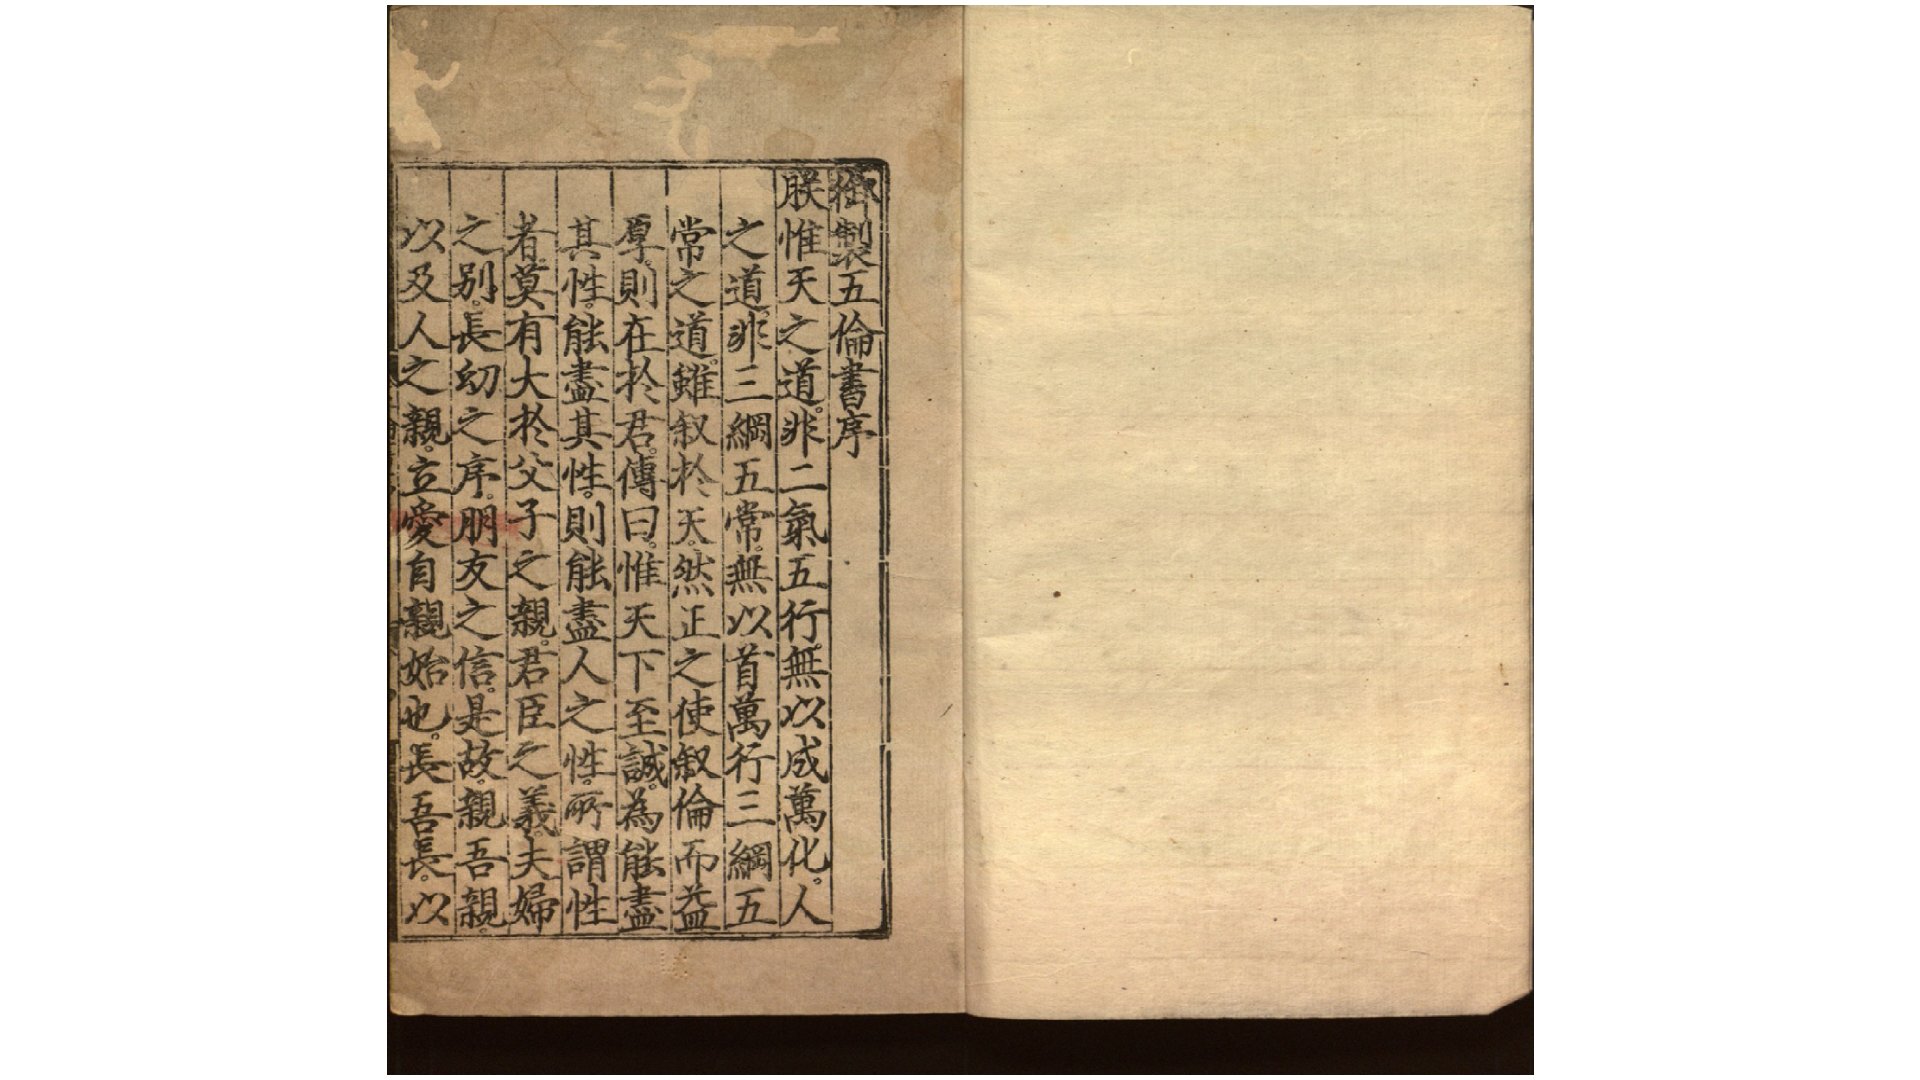 御製五倫書序
朕惟天之道。非二氣五行。無以成萬化。人
之道。非三綱五常。無以首萬行三綱五
常之道。雖叙於天。然正之使叙倫而益
厚。則在於君。傳曰。惟天下至誠。為能盡
其性。能盡其性。則能盡人之性。所謂性
者。莫有大於父子之親。君臣之義。夫婦
之别。長幼之序。朋友之信。是故。親吾親。
以及人之親。立愛自親始也。長吾長。以